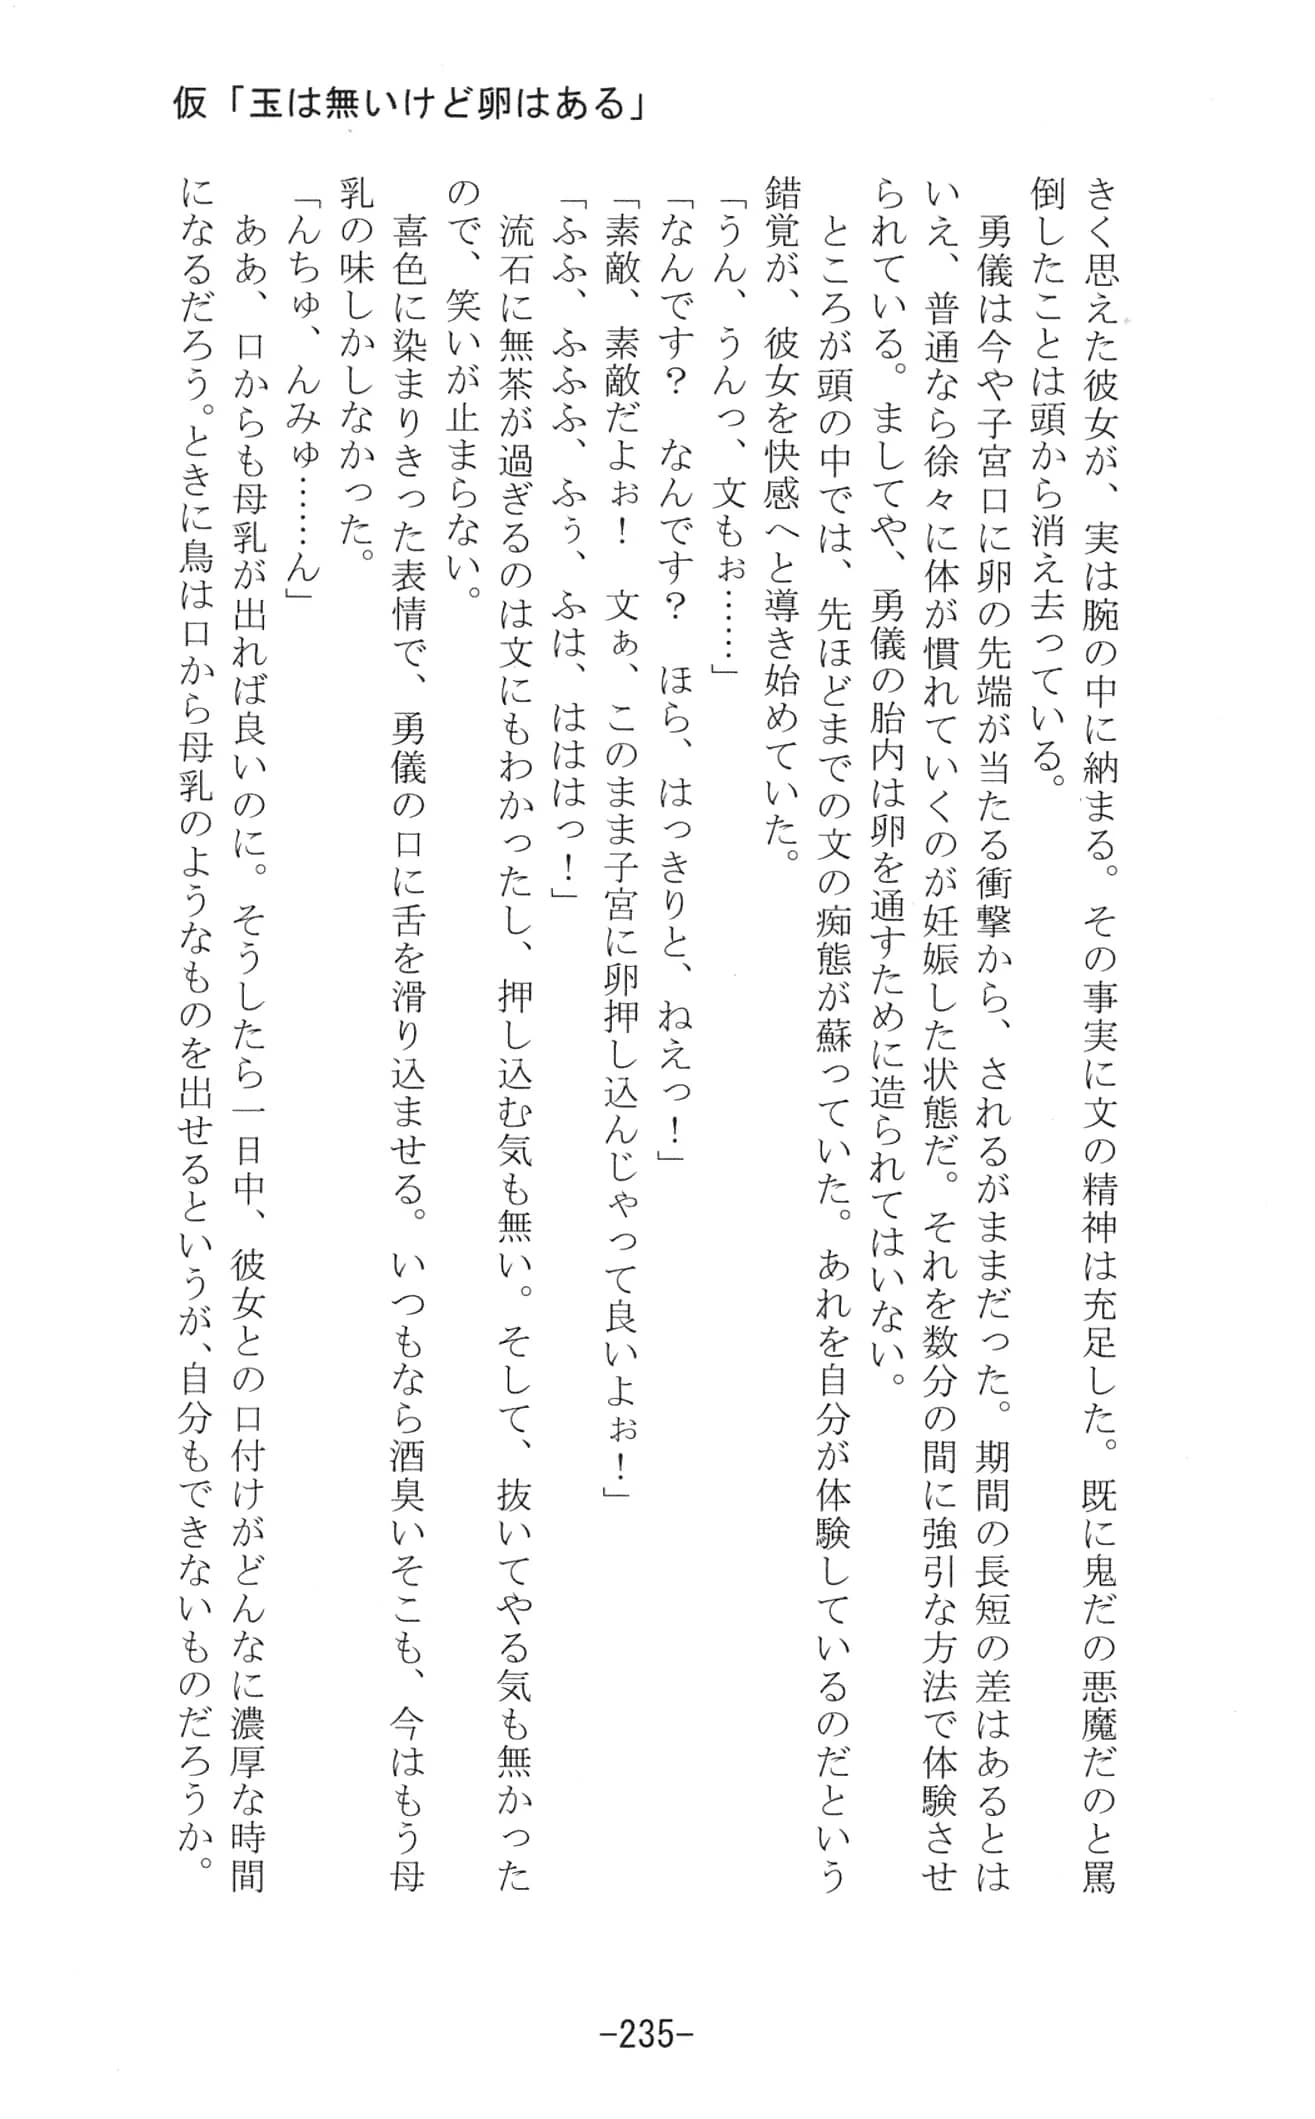 仮「玉は無いけど卵はある」
きく思えた彼女が、実は腕の中に納まる。その事実に文の精神は充足した。既に鬼だの悪魔だのと罵
倒したことは頭から消え去っている。
　勇儀は今や子宮口に卵の先端が当たる衝撃から、されるがままだった。期間の長短の差はあるとは
いえ、普通なら徐々に体が慣れていくのが妊娠した状態だ。それを数分の間に強引な方法で体験させ
られている。ましてや、勇儀の胎内は卵を通すために造られてはいない。
　ところが頭の中では、先ほどまでの文の痴態が蘇っていた。あれを自分が体験しているのだという
錯覚が、彼女を快感へと導き始めていた。
「うん、うんっ、文もぉ……」
「なんです？　なんです？　ほら、はっきりと、ねえっ！」
「素敵、素敵だよぉ！　文ぁ、このまま子宮に卵押し込んじゃって良いよぉ！」
「ふふ、ふふふ、ふぅ、ふは、はははっ！」
　流石に無茶が過ぎるのは文にもわかったし、押し込む気も無い。そして、抜いてやる気も無かった
ので、笑いが止まらない。
　喜色に染まりきった表情で、勇儀の口に舌を滑り込ませる。いつもなら酒臭いそこも、今はもう母
乳の味しかしなかった。
「んちゅ、んみゅ……ん」
　ああ、口からも母乳が出れば良いのに。そうしたら一日中、彼女との口付けがどんなに濃厚な時間
になるだろう。ときに鳥は口から母乳のようなものを出せるというが、自分もできないものだろうか。
-235-